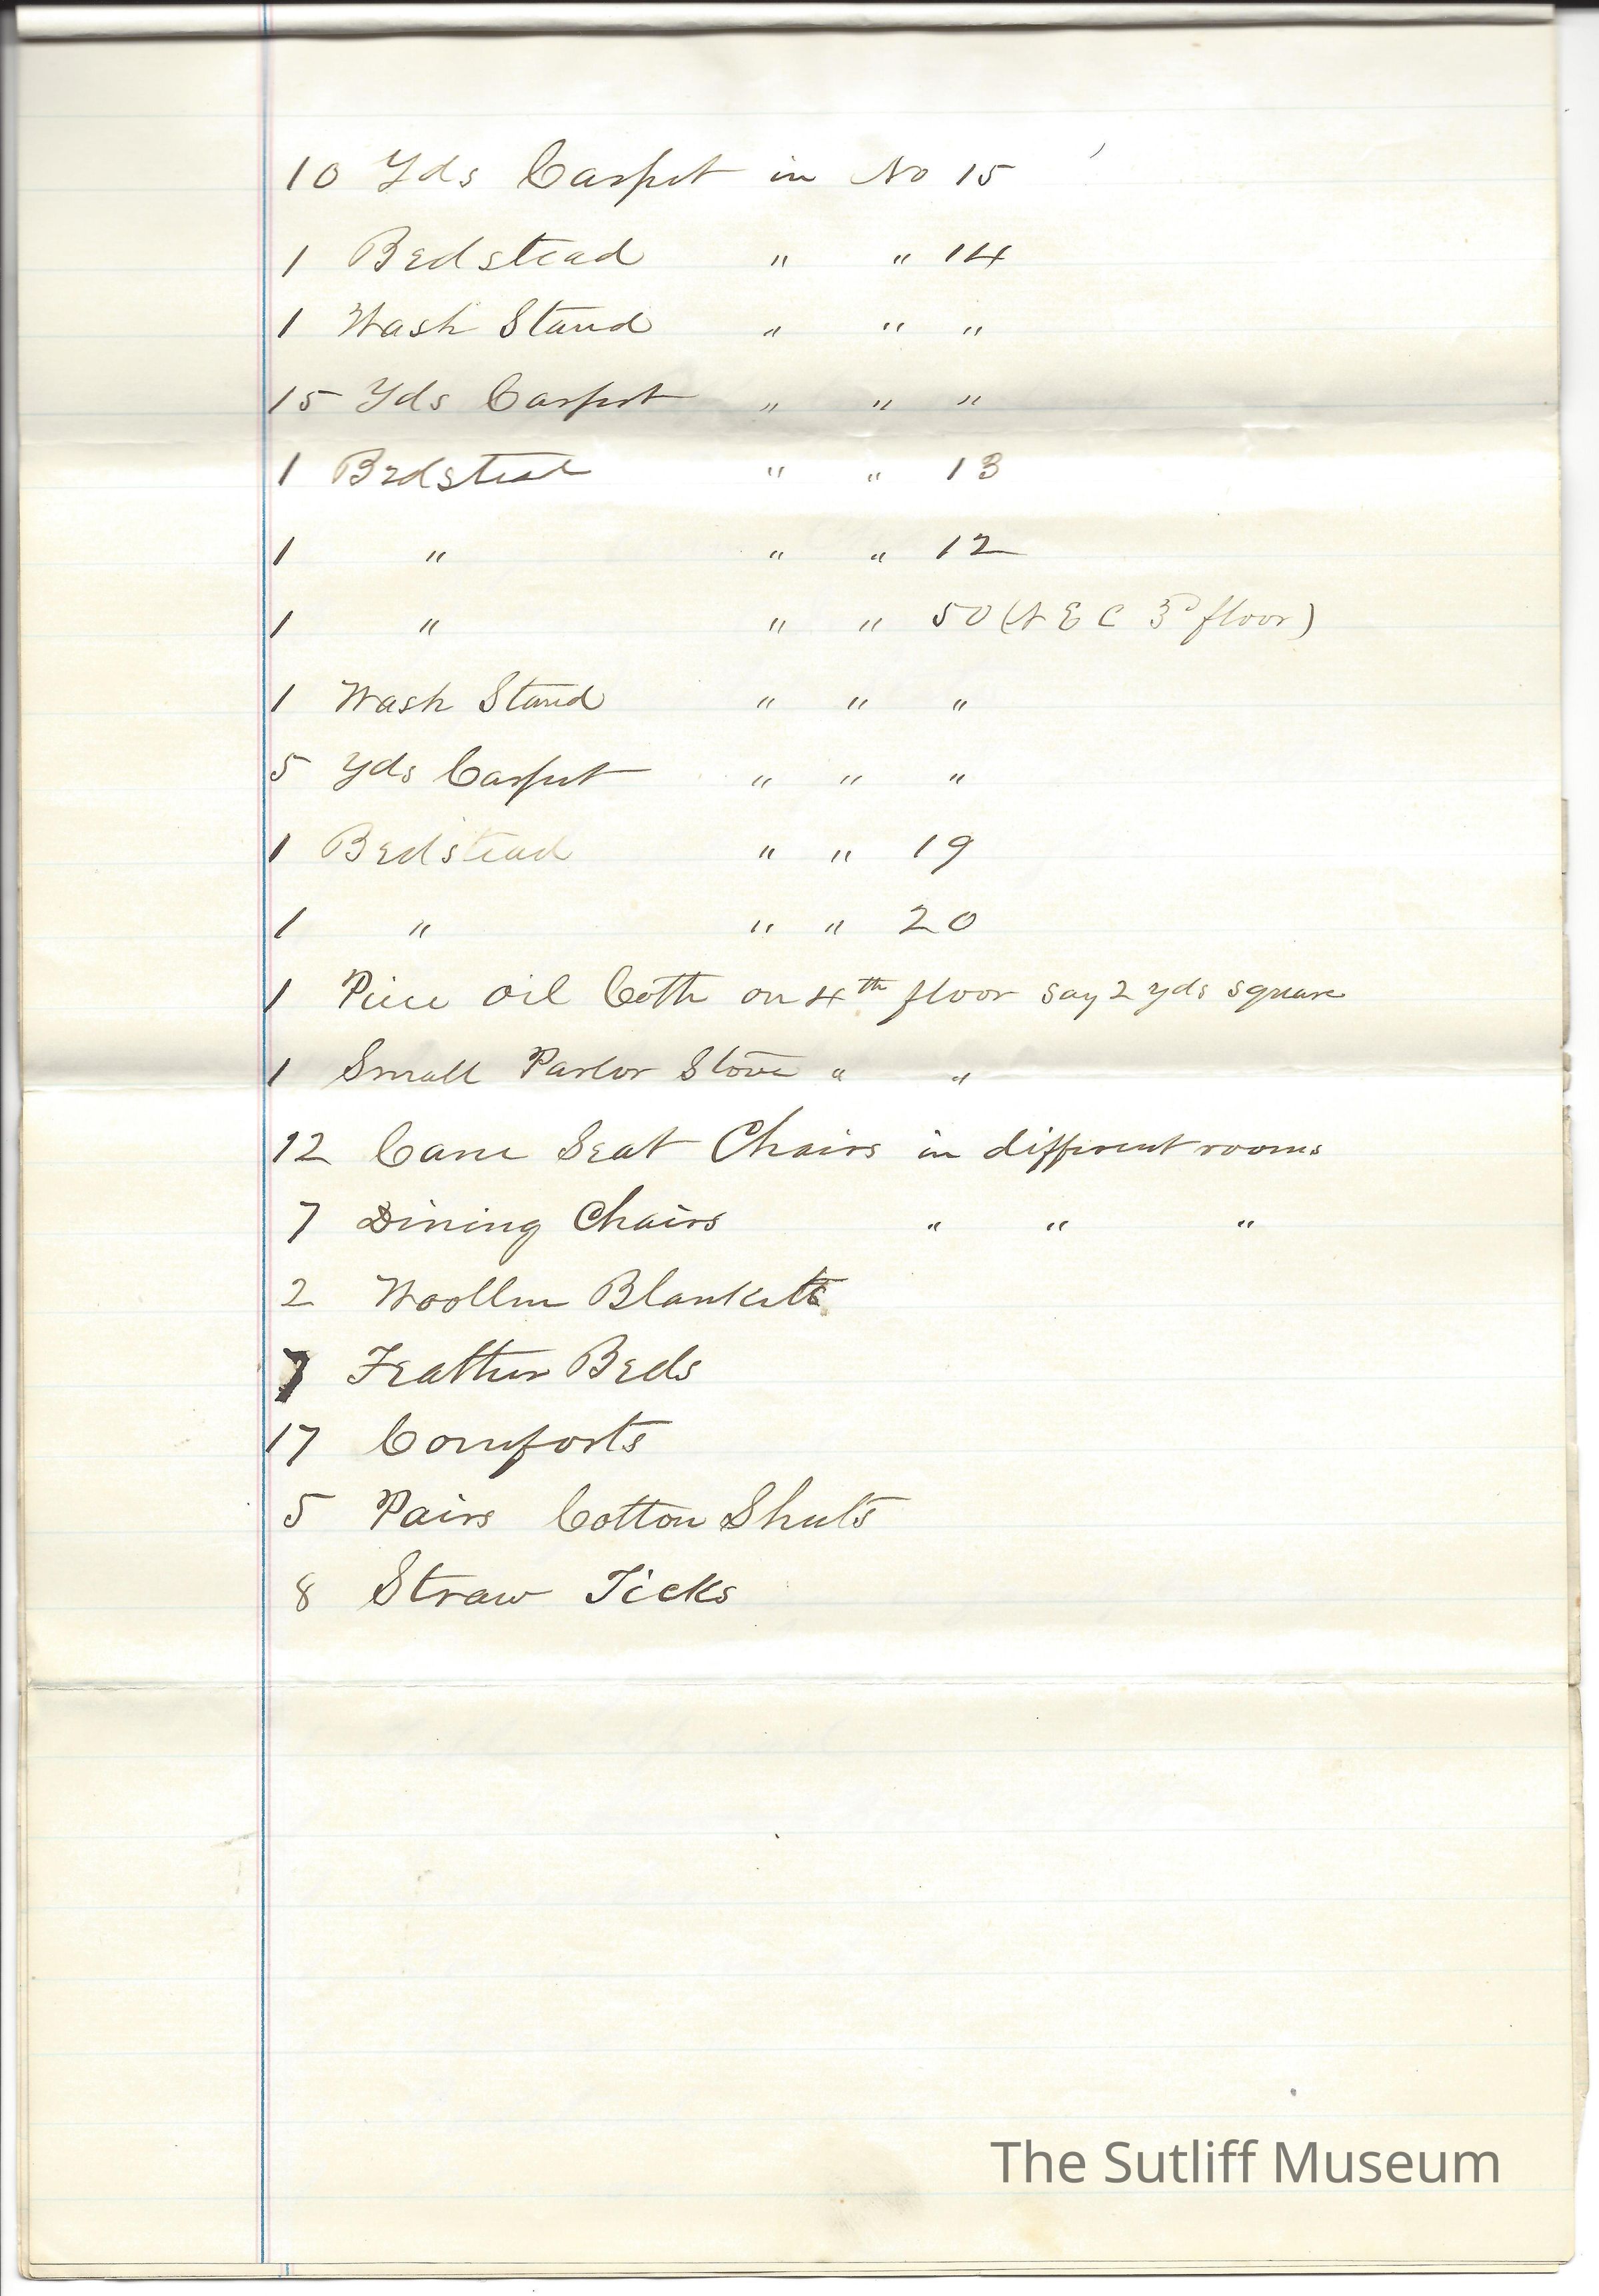 10 Yds Carpet in No 15
1 Bedstead " " 14
1 Wash Stand " " "
15 Yds Carpet " " "
1 Bedstead " " 13
1 " " " 12
1 " " " 50 (N E C 3d floor)
1 Wash Stand " " "
5 Yds Carpet " " "
1 Bedstead " " 19
1 " " " 20
1 Piece Oil Coth on 4th floor say 2 yds square
1 Small Parlor Stove " "
12 Cane Seat Chairs in different rooms
7 Dining Chairs " " "
2 Woollen Blankets
7 Feather Beds
17 Comforts
5 Pairs Cotton Sheets
8 Straw Ticks
The Sutliff Museum